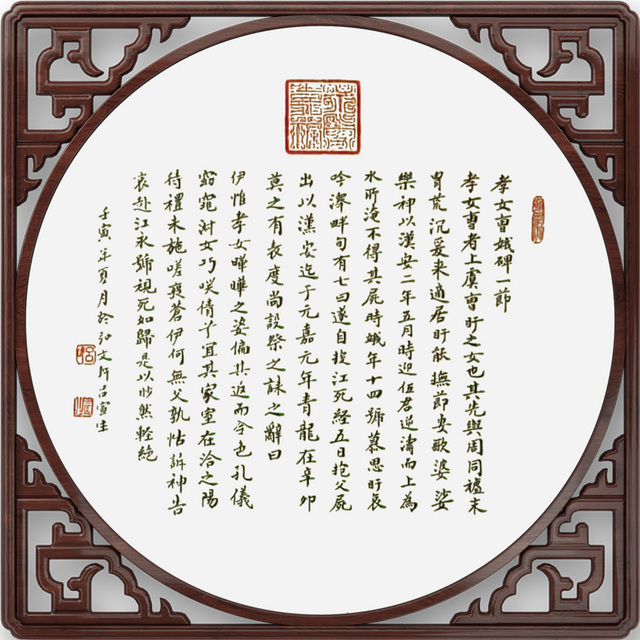 孝女曹娥碑一節
孝女曹者上虞曹盱之女也其先與周同祖末
胄荒沉爰来適居盱能撫節安歌婆娑
樂神以漢安二年五月時迎伍君逆濤而上為
水所淹不得其屍時娥年十四號慕思盱哀
吟澤畔旬有七日遂自投江死経五日抱父屍
出以漢安迄于元嘉元年青龍在辛卯
莫之有表度尚設祭之誄之辭曰
伊惟孝女曄曄之姿偏其返而令色孔儀
窈窕淑女巧咲倩兮宜其家室在洽之陽
待禮未施嗟喪蒼伊何無父孰怙訴神告
哀赴江永號視死如歸是以眇然軽絶
壬寅年夏月於弘文